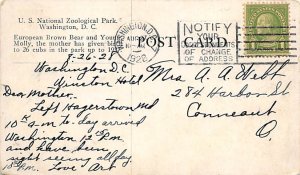 U. S. National Zoological Park.
Washington, D. C.
European Brown Bear and Young
Molly, the mother has given birth
to 26 cubs in the park up to 19
POST CARD
WASHINGTON, D.C.
1928
NOTIFY
YOUR
CORRESPONDENTS
OF CHANGE
OF ADDRESS
7-26-28
Washington D.C.
Winston Hotel
Dear Mother.
Left Hagerstown Md
10 A.M. to-day arrived
Washington 12 P.M.
and have been
sight seeing all day
Love Art
Mrs A. A. Webb
284 Harbor St
Conneaut
O.